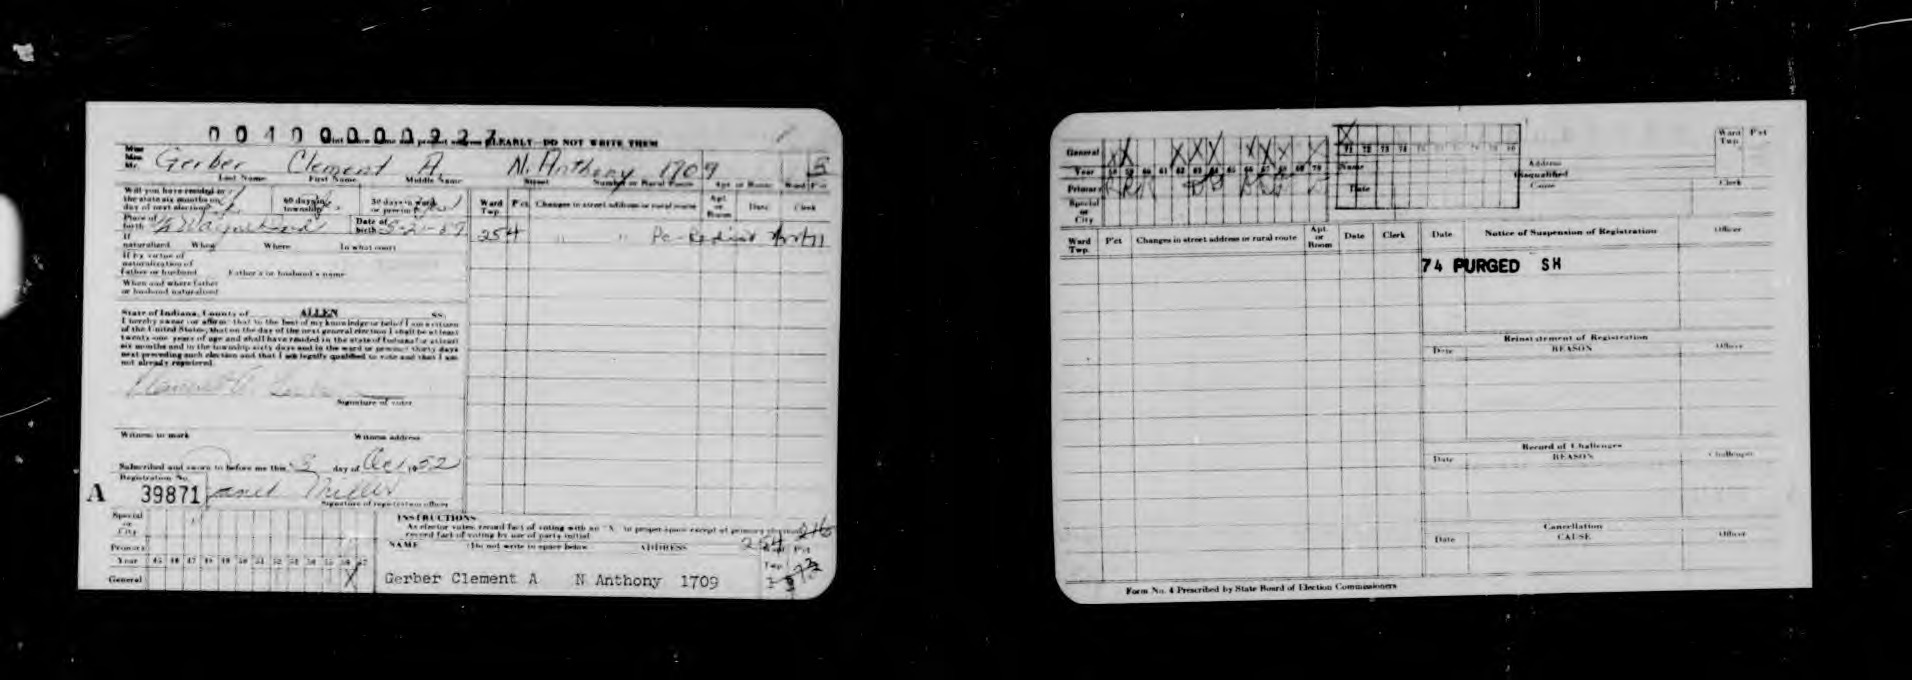 Print above name and present address CLEARLY—DO NOT WRITE THEM
Miss
Mrs.
Mr. Gerber Clement A. N. Anthony 1709 5
Last Name First Name Middle Name Street Number or Rural Route Apt. or Room Ward Pct
Will you have resided in
the state six months on
day of next election?
60 days in
township
30 days in ward
or precinct
Ward
Twp. Pct Changes in street address or rural route Apt.
or
Room Date Clerk
Place of
birth
Date of
birth
254 " "
If
naturalized When Where In what court
If by virtue of
naturalization of
father or husband Father's or husband's name
When and where father
or husband naturalized
State of Indiana, County of ALLEN SS:
I hereby swear (or affirm) that to the best of my knowledge or belief I am a citizen
of the United States; that on the day of the next general election I shall be at least
twenty-one years of age and shall have resided in the state of Indiana for at least
six months and in the township sixty days and in the ward or precinct thirty days
next preceding such election and that I am legally qualified to vote and that I am
not already registered.
Signature of voter
Witness to mark Witness address
Subscribed and sworn to before me this 3 day of Oct 1952
Registration No.
A 39871 Janet Miller
Signature of registration officer
Special
or
City
Primary
Year 45 46 47 48 49 50 51 52 53 54 55 56 57
General X
INSTRUCTIONS
As elector votes, record fact of voting with an "X" in proper space except at primary elections
record fact of voting by use of party initial
254 216
NAME (Do not write in space below) ADDRESS Pct
Twp.
Gerber Clement A N Anthony 1709
General X X X X X X X X
Year 58 59 60 61 62 63 64 65 66 67 68 69 70
Primary
Special
or
City
X
71 72 73 74 75 76 77 78 79 80
Name Address
Disqualified
Date Cause Clerk
Ward
Twp. Pct
Ward
Twp. P'ct Changes in street address or rural route Apt.
or
Room Date Clerk
Date Notice of Suspension of Registration Officer
74 PURGED SH
Reinstatement of Registration
Date REASON Officer
Record of Challenges
Date REASON Challenger
Cancellation
Date CAUSE Officer
Form No. 4 Prescribed by State Board of Election Commissioners